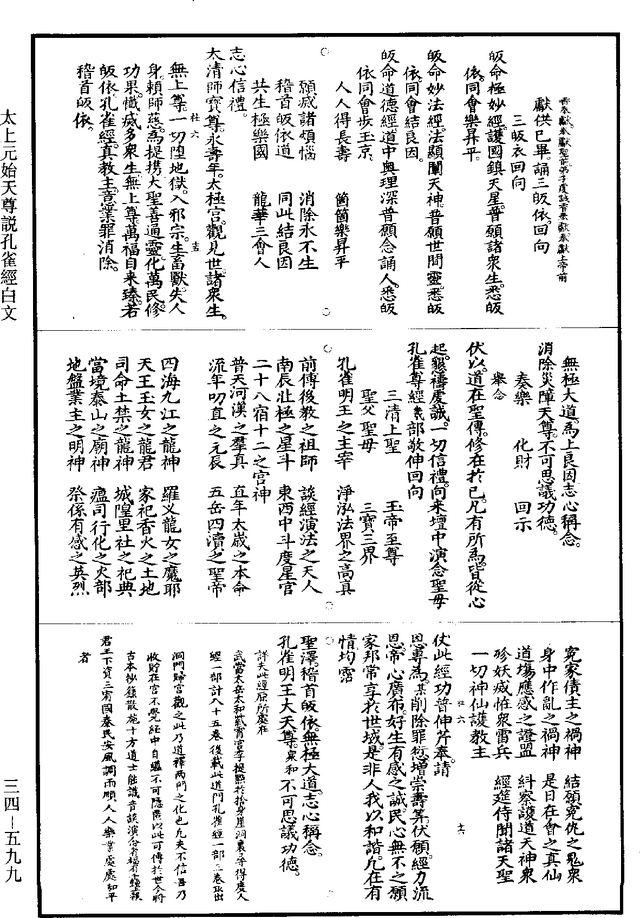 香奉獻奉獻聖前弟子虔誠香奉獻奉獻上帝前
獻供已畢誦三皈依回向
三皈依回向
皈命極妙經護國鎮天星普願諸眾生悉皈
依同會樂昇平
皈命妙法經法顯闡天神普願世間靈悉皈
依同會結良因
皈命道德經道中奧理深普願念誦人悉皈
依同會步玉京
人人得長壽　箇箇樂昇平
願滅諸煩惱　消除永不生
稽首皈依道　同此結良因
共生極樂國　龍華三會人
志心信禮
大清師寶尊永壽年太極宮觀見世諸眾生
無上尊一切隍地獄入邪宗生畜獸失人
身賴師慈為提携大聖善通靈化萬民修
功果懺滅多眾生無上尊萬福自来臻若
皈依孔雀經真教主意業罪消除
稽首皈依
無極大道為上良因志心稱念
消除災障天尊不可思議功德
奏樂　化財　回示
舉念
伏以道在聖傳修在於己凡有所為皆從心
起懇禱虔誠一切信禮向来壇中演念聖母
孔雀尊經幾部敬伸回向
三清上聖　玉帝至尊
聖父聖母　三寶三界
孔雀明王之主宰　淨泓法界之高真
前傳後教之祖師　談經演法之天人
南辰北極之星斗　東西中斗度星官
二十八宿十二之宮神
普天河漢之羣真　直年太歲之本命
流年叨直之元辰　五岳四瀆之聖帝
四海九江之龍神　羅义龍女之魔耶
天王玉女之龍君　家祀香火之土地
司命土禁之龍神　城隍里社之祀典
當境泰山之廟神　瘟司行化之火部
地盤業主之明神　祭係有感之英烈
冤家債主之禍神　結願冤仇之鬼眾
身中作亂之禍神　是日在會之真仙
道塲應感之證盟　糾察護道天神眾
殄妖滅恠眾雷兵　經筵侍聞諸天聖
一切神仙護教主
仗此經功普伸斈奉請
恩尊為某削除罪愆增崇壽筭伏願經力流
恩帝心廣布好生有感之誠民心無不之願
家邦常享於世域是非人我以和諧凡在有
情均霑
聖澤稽首皈依無極大道志心稱念
孔雀明王大天尊眾和不可思議功德
詳夫此經原所處在
武當太岳太和
經一部計八十五卷後載此道門孔雀經一部三卷取出
洞門歸宮觀之此乃道釋兩門之化也凡夫不信吾乃
收貯在宮不覺經中自
古本抄錄散施十方道士
君王下資三宥國泰民安風調雨順人人樂業處處和平
者
太上元始天尊說孔雀經白文
三四－五九九